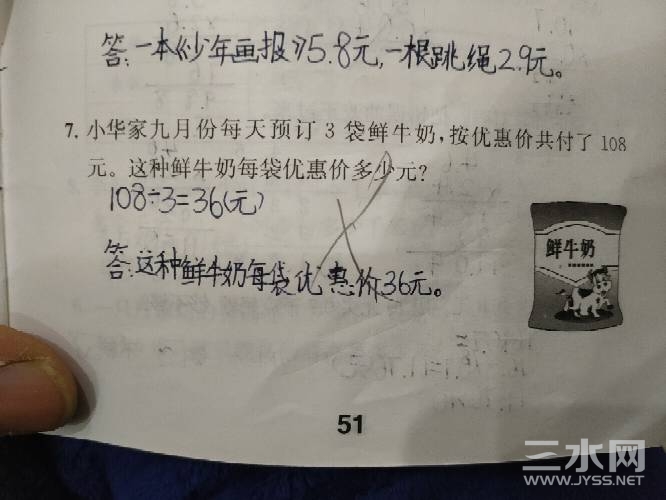 答:一本《少年画报》5.8元,一根跳绳2.9元。
7. 小华家九月份每天预订 3 袋鲜牛奶,按优惠价共付了 108
元。这种鲜牛奶每袋优惠价多少元?
108÷3=36(元)
答:这种鲜牛奶每袋优惠价36元。
鲜牛奶
51
三水网
WWW.JYSS.NET